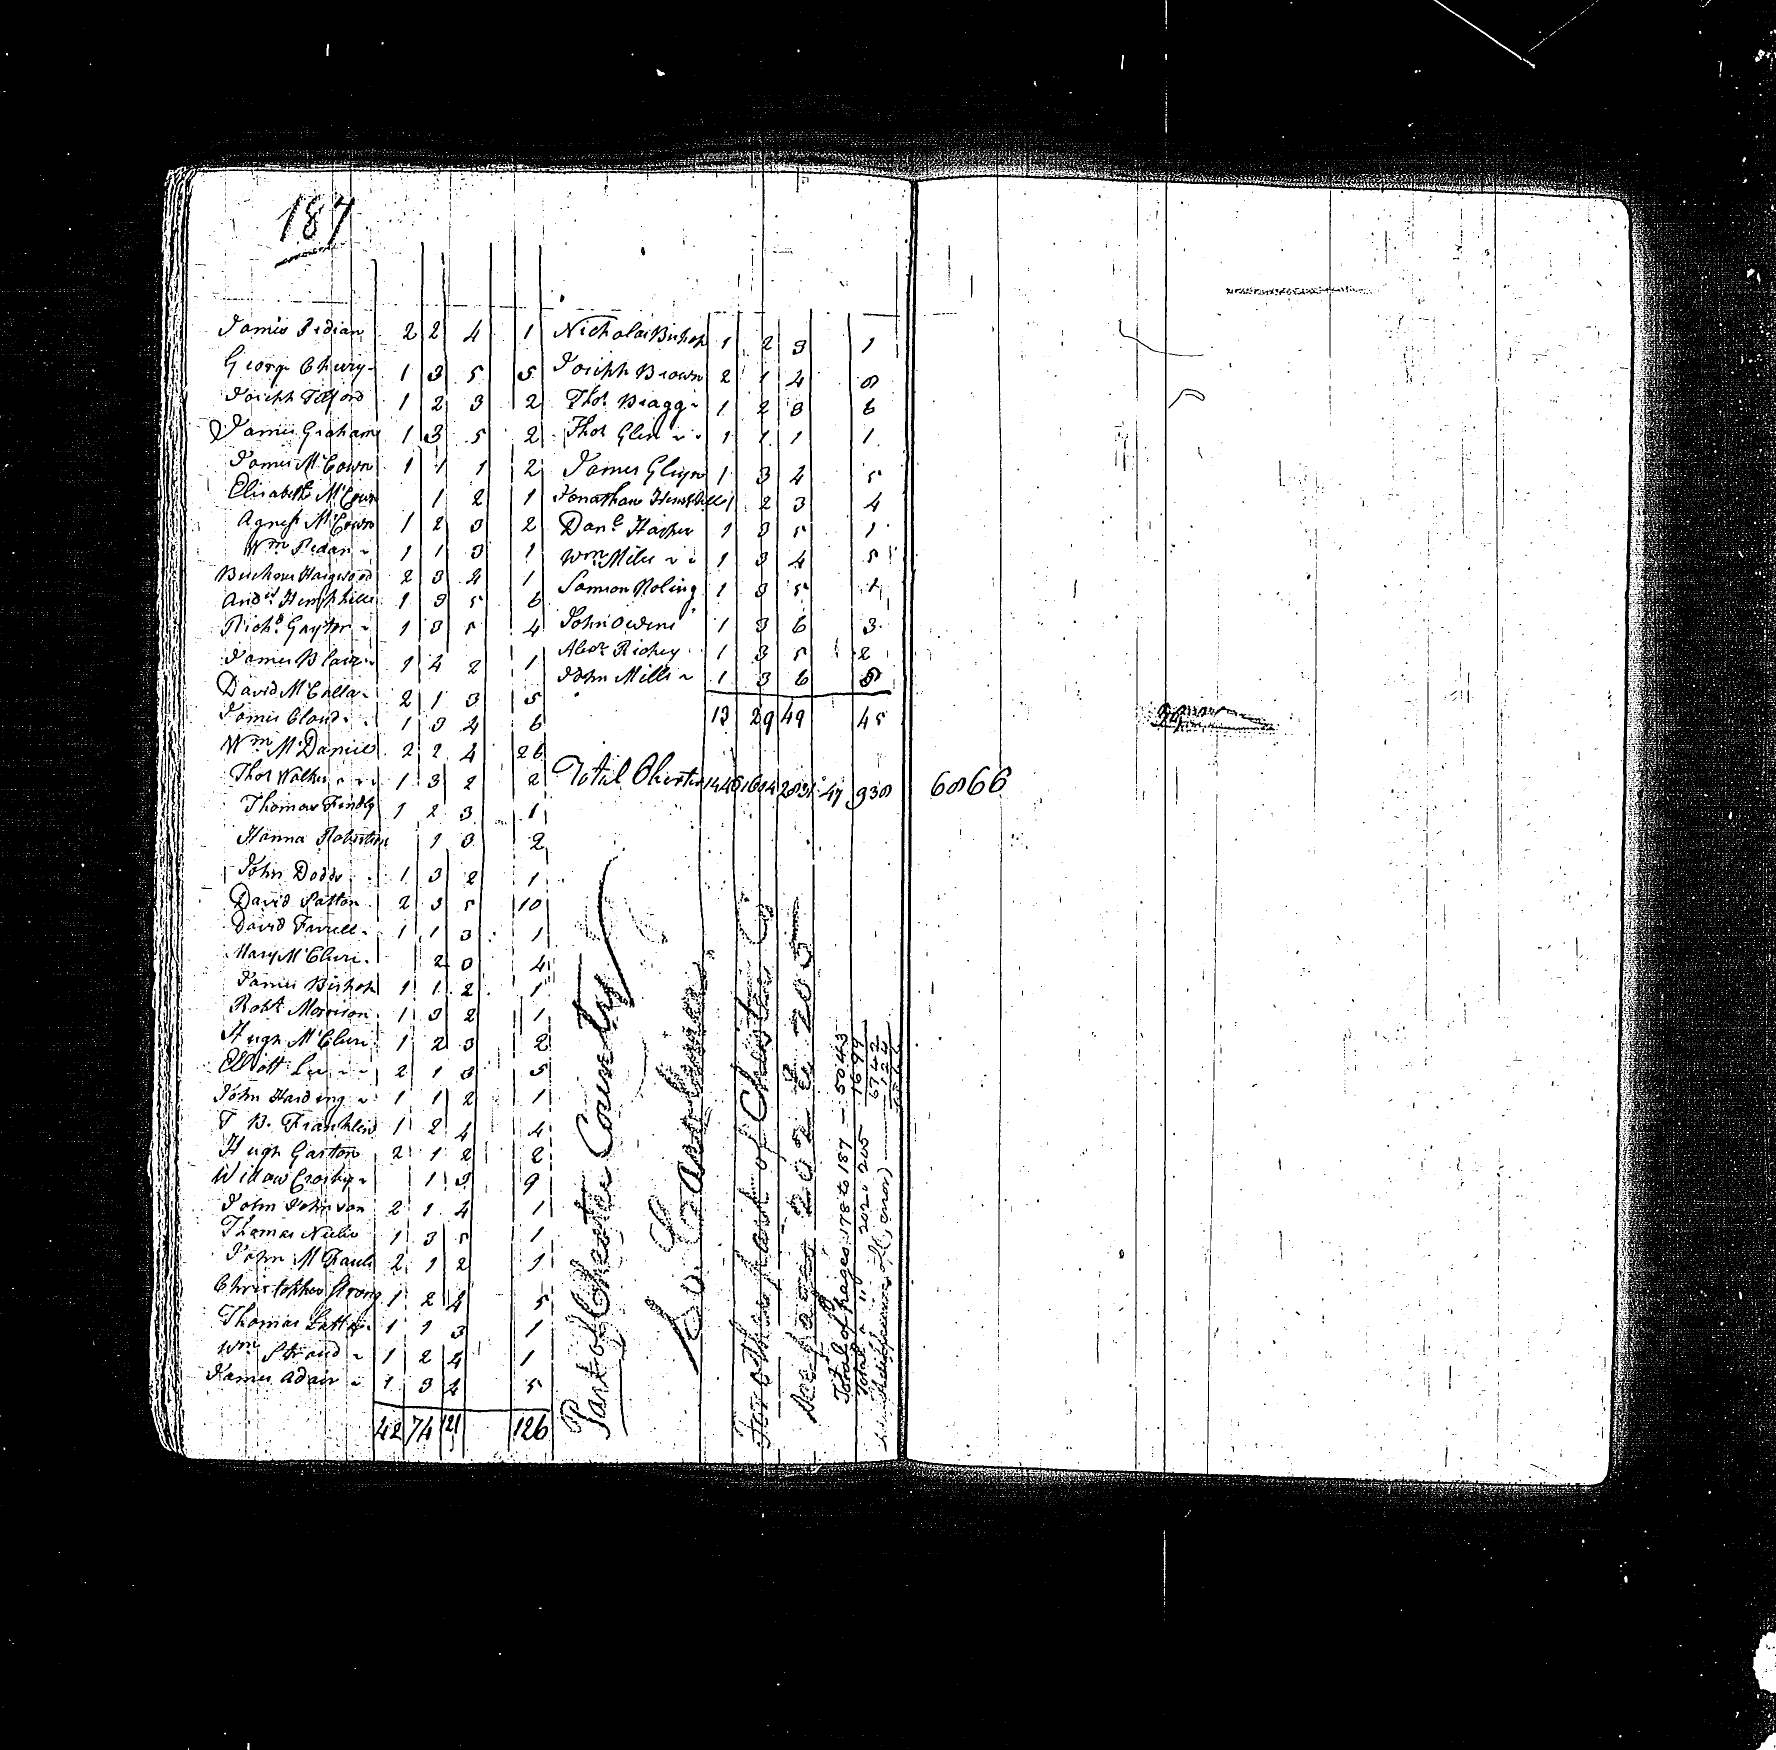 187
James Pedian 2 2 4 1
George Cherry 1 3 5 5
Joseph Telford 1 2 3 2
James Graham 1 3 5 2
James McCown 1 1 1 2
Elisabeth McCown 1 2 1
Agness McCown 1 2 3 2
Wm Pedan 1 1 3 1
Buckner Haigwood 2 3 4 1
Andw Hemphill 1 3 5 6
Richd Gayton 1 3 5 4
James Blair 1 4 2 1
David McCalla 2 1 3 5
James Cloud 1 3 4 6
Wm McDaniel 2 2 4 26
Thos Walker 1 3 2 2
Thomas Findly 1 2 3 1
Hanna Robertson 1 3 2
John Dodds 1 3 2 1
David Patton 2 3 5 10
David Farrell 1 1 3 1
Mary McClure 2 3 4
James Bishop 1 1 2 1
Robt Morrison 1 3 2 1
Hugh McClure 1 2 3 2
Elliott Lee 2 1 3 5
John Harding 1 1 2 1
T B. Franklin 1 2 4 4
Hugh Gaston 2 1 2 2
Widow Crosby 1 3 9
John Johnson 2 1 4 1
Thomas Neely 1 3 5 1
John McFaul 2 1 2 1
Christopher Strong 1 2 4 5
Thomas 1 1 3 1
Wm Stroud 1 2 4 1
James Adair 1 3 4 5
42 74 121 126
Nicholas Bishop 1 2 3 1
Joseph Brown 2 1 4 8
Thos Bragg 1 2 3 6
Thos Glen 1 1 1 1
James Glynn 1 3 4 5
Jonathan Hemphill 1 2 3 4
Danl Harper 1 3 5 1
Wm Miles 1 3 4 5
Samson Noling 1 3 5 1
John Owens 1 3 6 3
Alexr Richey 1 3 5 2
John Mills 1 3 6 8
13 29 49 45
Total Chester 1446 1604 2831 47 938 6866
Part of Chester County
So Carolina
For other part of Chester Co
See pages 202 to 205
Total of pages 178 to 187 — 5043
Total " " 202 - 205 1699
6742
124
6866